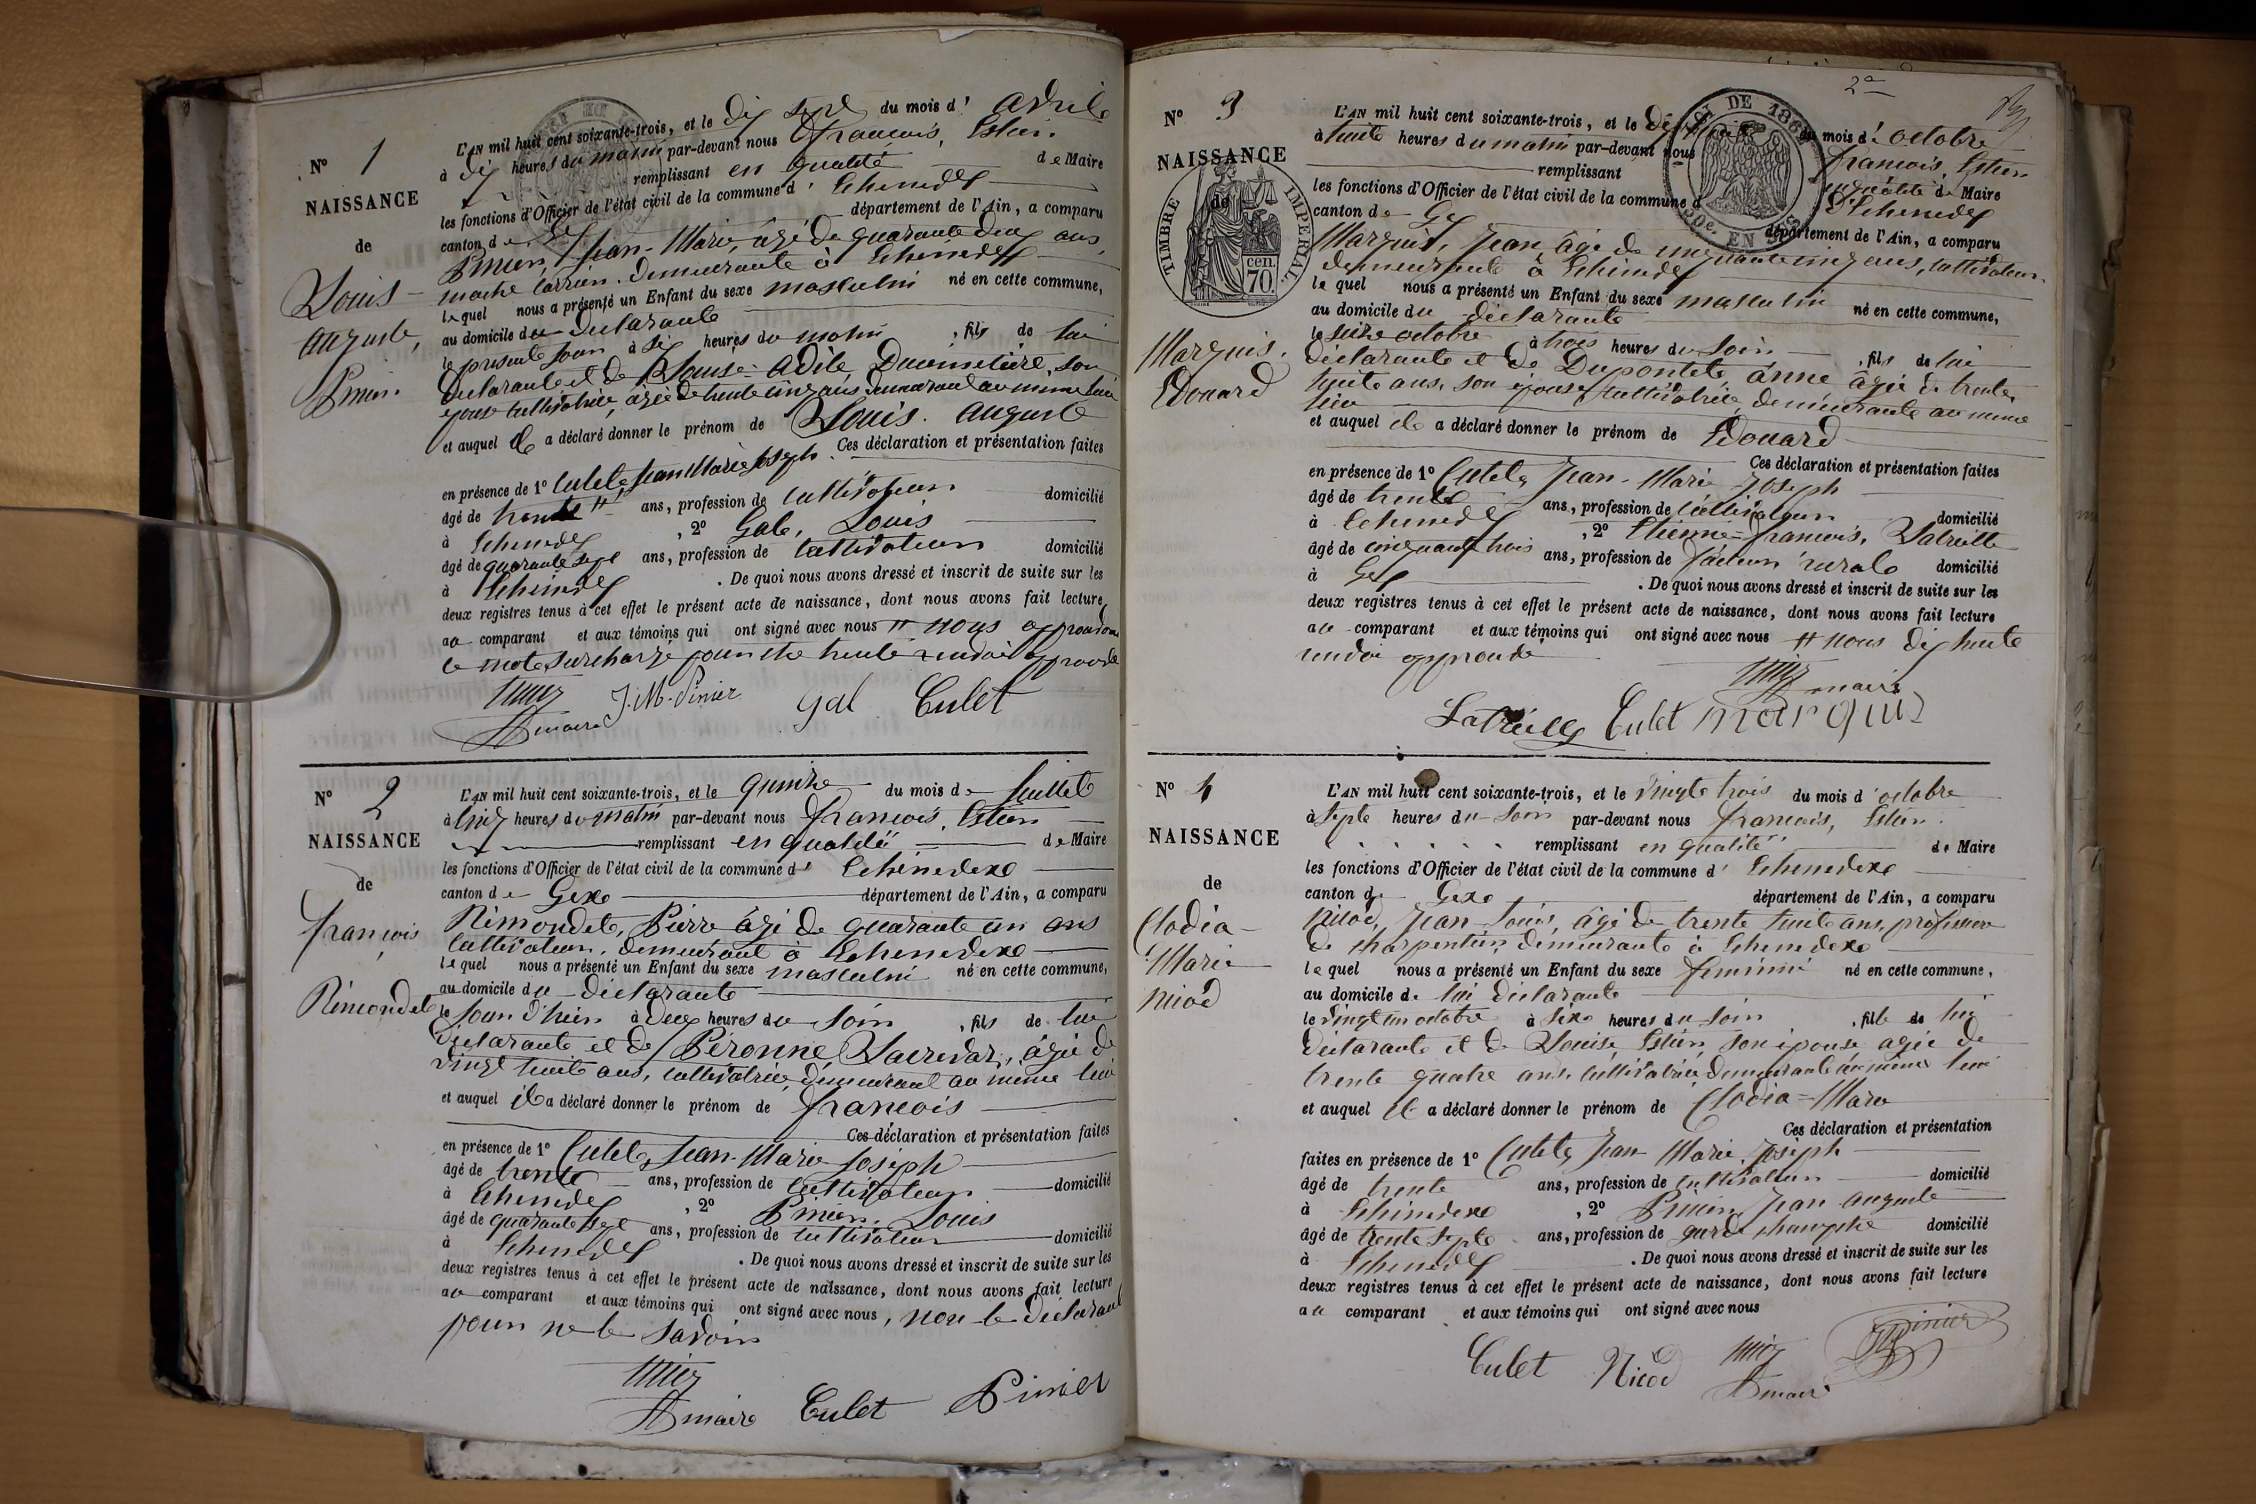 N° 1
NAISSANCE
de
Louis
Auguste,
Pinier
L'AN mil huit cent soixante-trois, et le dix sept du mois d'avril
à dix heures du matin par-devant nous françois, Estier.
remplissant en qualité de Maire
les fonctions d'Officier de l'état civil de la commune d'Echenedex
canton de Gex département de l'Ain, a comparu
Pinier, Jean-Marie, âgé de quarante deux ans,
demeurante à Echenedex
lequel nous a présenté un Enfant du sexe masculin né en cette commune,
au domicile du declarante
le presente jour à six heures du matin, fils de lui
declarante et de Louise Adèle son
epouse cultivatrice, agée de trente cinq ans, demeurant au meme lieu
et auquel il a déclaré donner le prénom de Louis. Auguste
Ces déclaration et présentation faites
en présence de 1° Culet, Jean Marie Joseph
âgé de trente # ans, profession de cultivateur domicilié
à Echenedex, 2° Gale, Louis
âgé de quarante sept ans, profession de cultivateur domicilié
à Echenedex. De quoi nous avons dressé et inscrit de suite sur les
deux registres tenus à cet effet le présent acte de naissance, dont nous avons fait lecture
au comparant et aux témoins qui ont signé avec nous # nous approuvons
le mote surcharge pour trente
maire J. M. Pinier Gal Culet
N° 2
NAISSANCE
de
françois
Rémondet
L'AN mil huit cent soixante-trois, et le quinze du mois de Juillet
à cinq heures du matin par-devant nous françois, Estier
remplissant en qualité de Maire
les fonctions d'Officier de l'état civil de la commune d'Echenedexe
canton de Gexe département de l'Ain, a comparu
Rémondet, Pierre âgé de quarante un ans
cultivateur, demeurant à Echenedexe
lequel nous a présenté un Enfant du sexe masculin né en cette commune,
au domicile du declarante
le jour d'hier à deux heures du soir, fils de lui
declarante et de Péronne agée de
vingt huit ans, cultivatrice, demeurant au meme lieu
et auquel il a déclaré donner le prénom de françois
Ces déclaration et présentation faites
en présence de 1° Culet, Jean-Marie Joseph
âgé de trente ans, profession de cultivateur domicilié
à Echenedex, 2° Pinier, Louis
âgé de quarante sept ans, profession de cultivateur domicilié
à Echenedex. De quoi nous avons dressé et inscrit de suite sur les
deux registres tenus à cet effet le présent acte de naissance, dont nous avons fait lecture
au comparant et aux témoins qui ont signé avec nous, non le déclarant
pour ne le savoir
maire Culet Pinier
2e
N° 3
NAISSANCE
de
TIMBRE IMPÉRIAL
cen. 70.
Marquis.
Edouard
L'AN mil huit cent soixante-trois, et le du mois d'octobre
à huite heures du matin par-devant nous françois, Estier
remplissant en qualité de Maire
les fonctions d'Officier de l'état civil de la commune d'Echenedex
canton de Gex département de l'Ain, a comparu
Marquis, Jean, âgé de cinquante cinq ans, cultivateur
demeurante à Echenedex
lequel nous a présenté un Enfant du sexe masculin né en cette commune,
au domicile du declarante
le seize octobre à trois heures du soir, fils de lui
déclarante et de Dupontete, anne âgée de trente
huite ans, son épouse, cultivatrice, demeurante au meme
lieu
et auquel il a déclaré donner le prénom de Edouard
Ces déclaration et présentation faites
en présence de 1° Culet, Jean-Marie Joseph
âgé de trente ans, profession de cultivateur domicilié
à Echenedex, 2° Etienne-françois, Latreille
âgé de cinquante trois ans, profession de facteur rurale domicilié
à Gex. De quoi nous avons dressé et inscrit de suite sur les
deux registres tenus à cet effet le présent acte de naissance, dont nous avons fait lecture
au comparant et aux témoins qui ont signé avec nous # nous dix huite
approuvé
maire
Latreille Culet marquis
N° 4
NAISSANCE
de
Clodia-
Marie
Nicod
L'AN mil huit cent soixante-trois, et le vingte trois du mois d'octobre
à septe heures du soir par-devant nous françois, Estier.
remplissant en qualité de Maire
les fonctions d'Officier de l'état civil de la commune d'Echenedexe
canton de Gexe département de l'Ain, a comparu
Nicod, Jean Louis, âgé de trente huite ans, profession
de charpentier, demeurante à Echenedexe
lequel nous a présenté un Enfant du sexe feminin né en cette commune,
au domicile de lui declarante
le vingt un octobre à sixe heures du soir, fille de lui
declarante et de Louise Estier, son épouse agée de
trente quatre ans, cultivatrice, demeurante au même lieu
et auquel il a déclaré donner le prénom de Clodia=Marie
Ces déclaration et présentation
faites en présence de 1° Culet, Jean Marie Joseph
âgé de trente ans, profession de cultivateur domicilié
à Echenedexe, 2° Pinier, Jean auguste
âgé de trente septe ans, profession de garde champetre domicilié
à Echenedex. De quoi nous avons dressé et inscrit de suite sur les
deux registres tenus à cet effet le présent acte de naissance, dont nous avons fait lecture
au comparant et aux témoins qui ont signé avec nous
Pinier
Culet Nicod maire